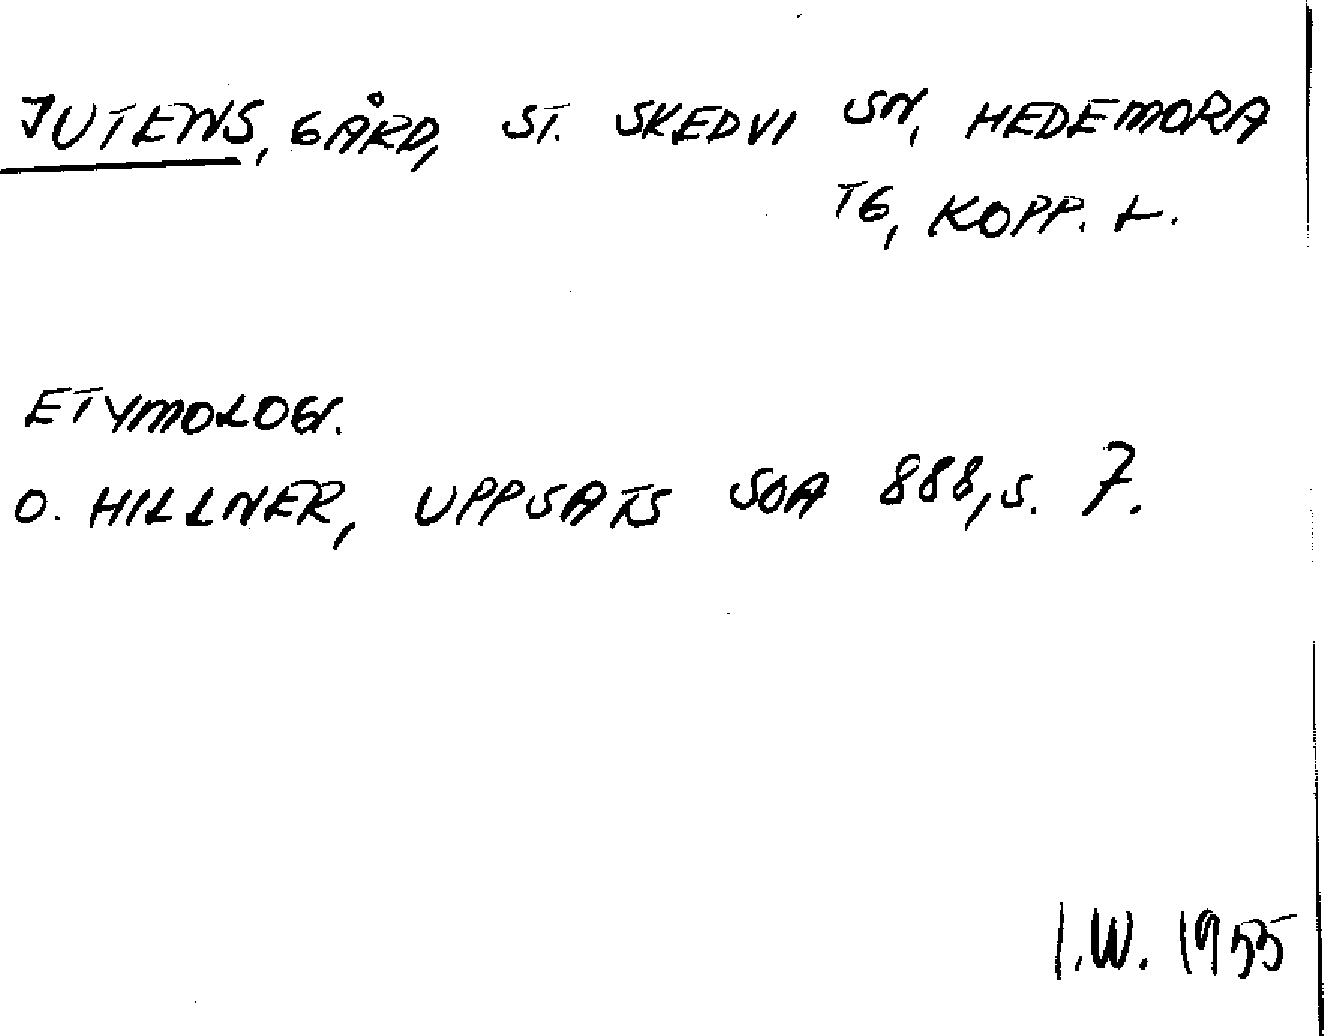 JUTENS, GÅRD, ST. SKEDVI SN, HEDEMORA
TG, KOPP. L.
ETYMOLOGI.
O. HILLNER, UPPSATS SOA 888, S. 7.
I.W. 1955